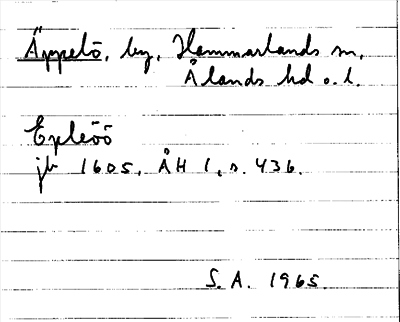 Äppelö, by, Hammarlands sn,
Ålands hd o. l.
Epleöö
jb 1605, ÅH 1, s. 436.
S. A. 1965.